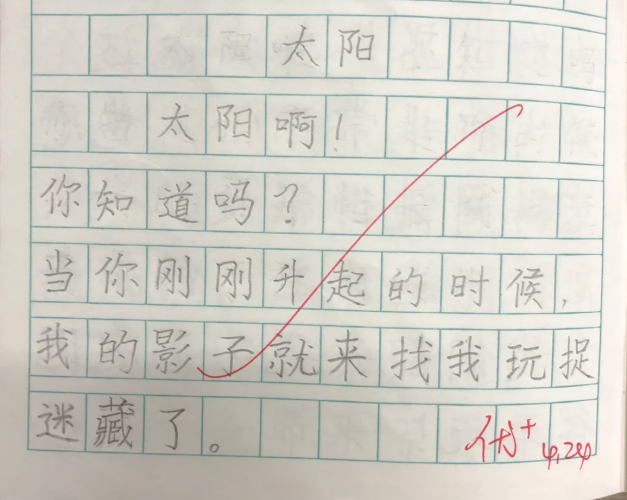 太阳
太阳啊！
你知道吗？
当你刚刚升起的时候，
我的影子就来找我玩捉
迷藏了。
优+
4.24